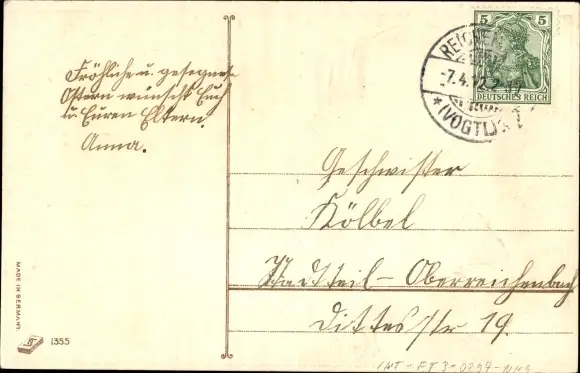 Fröhliche u. gesegnete
Ostern wünscht Euch
u. Euren Eltern.
Anna.
5 5
DEUTSCHES REICH
REICHEN
-7.4.12.
* (VOGTL) *
Geschwister
Kölbel
Stadtteil - Oberreichenbach
Dittesstr 19.
MADE IN GERMANY.
1355